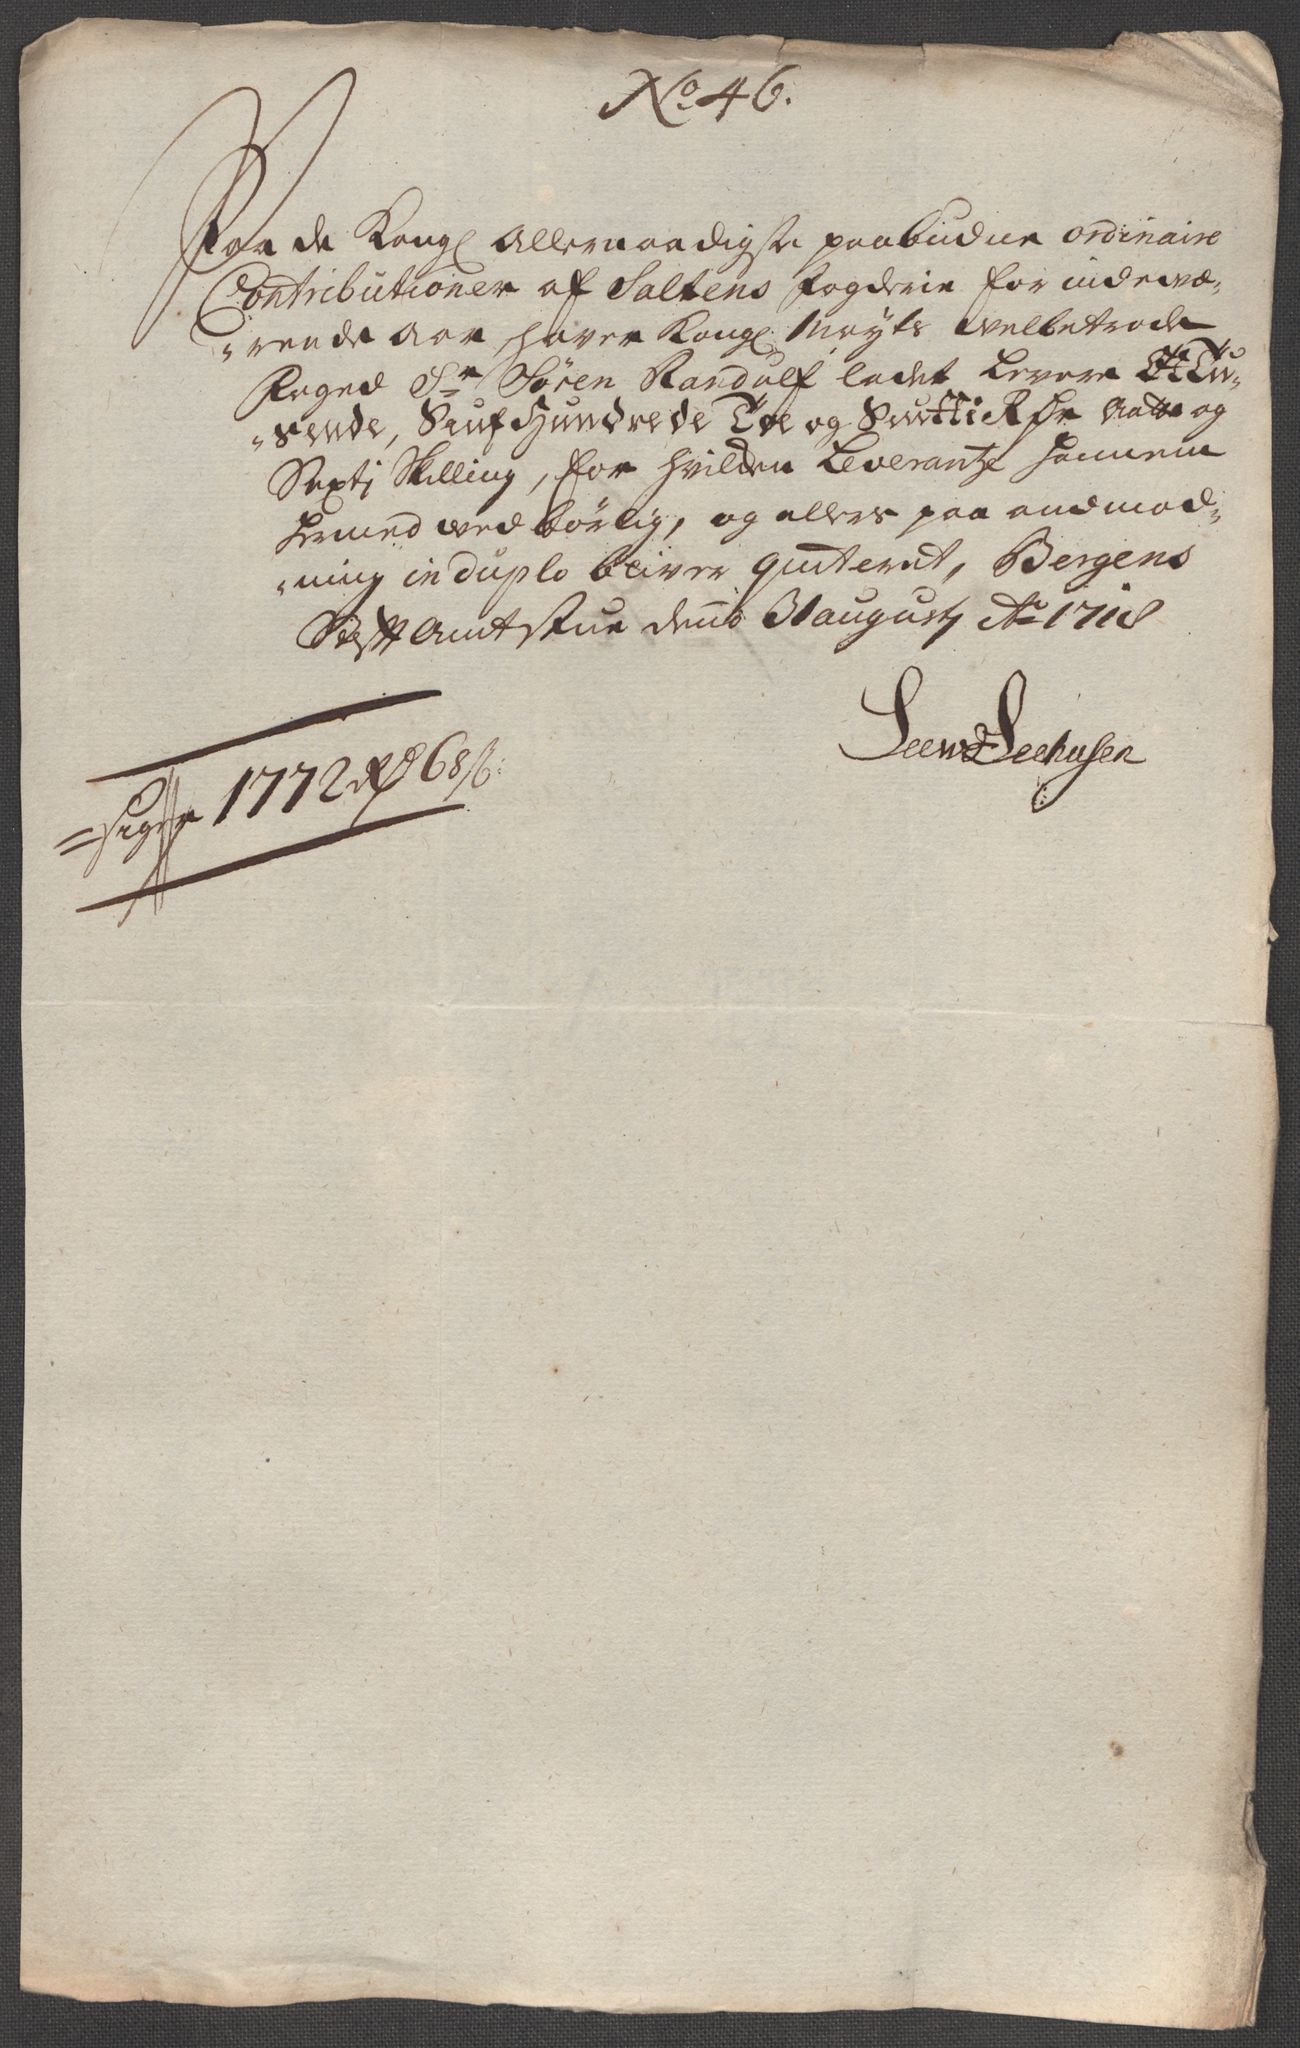 No 46.
Paa de Kongl Allernaadigste paabudne ordinaire
Contributioner af Saltens Fogderie for indewæ-
-rende Aar, haver Kongl. Mayts welbetrode
Foged Sr Søren Randulf ladet Levere Et Tu-
-sende, Siuf Hundrede Toe og Siutti Rdr Aatte og
Sexti Skilling, for hvilden Leverantze hannem
hermed wed børlig, og ellers paa anmod-
-ning in duplo bliver quiterit, Bergens
Stift Amtstue denn 31 augusti Ao 1718
Leew Seehusen
=siger 1772 Rd 68 s: